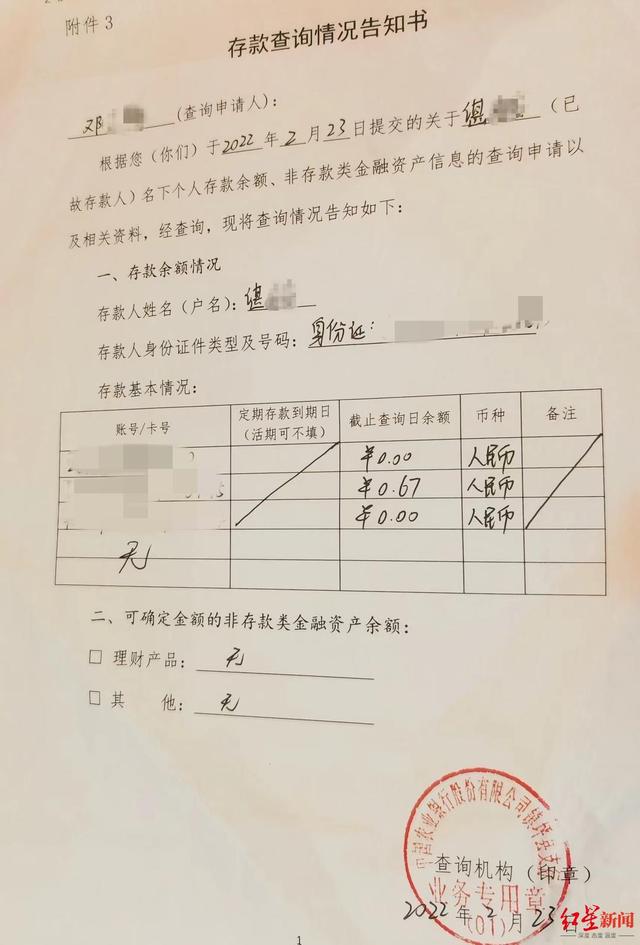 附件3
存款查询情况告知书
邓 (查询申请人):
根据您(你们)于2022年2月23日提交的关于谌 (已
故存款人)名下个人存款余额、非存款类金融资产信息的查询申请以
及相关资料,经查询,现将查询情况告知如下:
一、存款余额情况
存款人姓名(户名):谌
存款人身份证件类型及号码:身份证:
存款基本情况:
账号/卡号 定期存款到期日(活期可不填) 截止查询日余额 币种 备注
¥0.00 人民币
¥0.67 人民币
¥0.00 人民币
无
二、可确定金额的非存款类金融资产余额:
□ 理财产品: 无
□ 其 他: 无
中国农业银行股份有限公司镇坪县支行
查询机构(印章)
业务专用章
(01)
2022年2月23日
红星新闻
深度 态度 温度
1